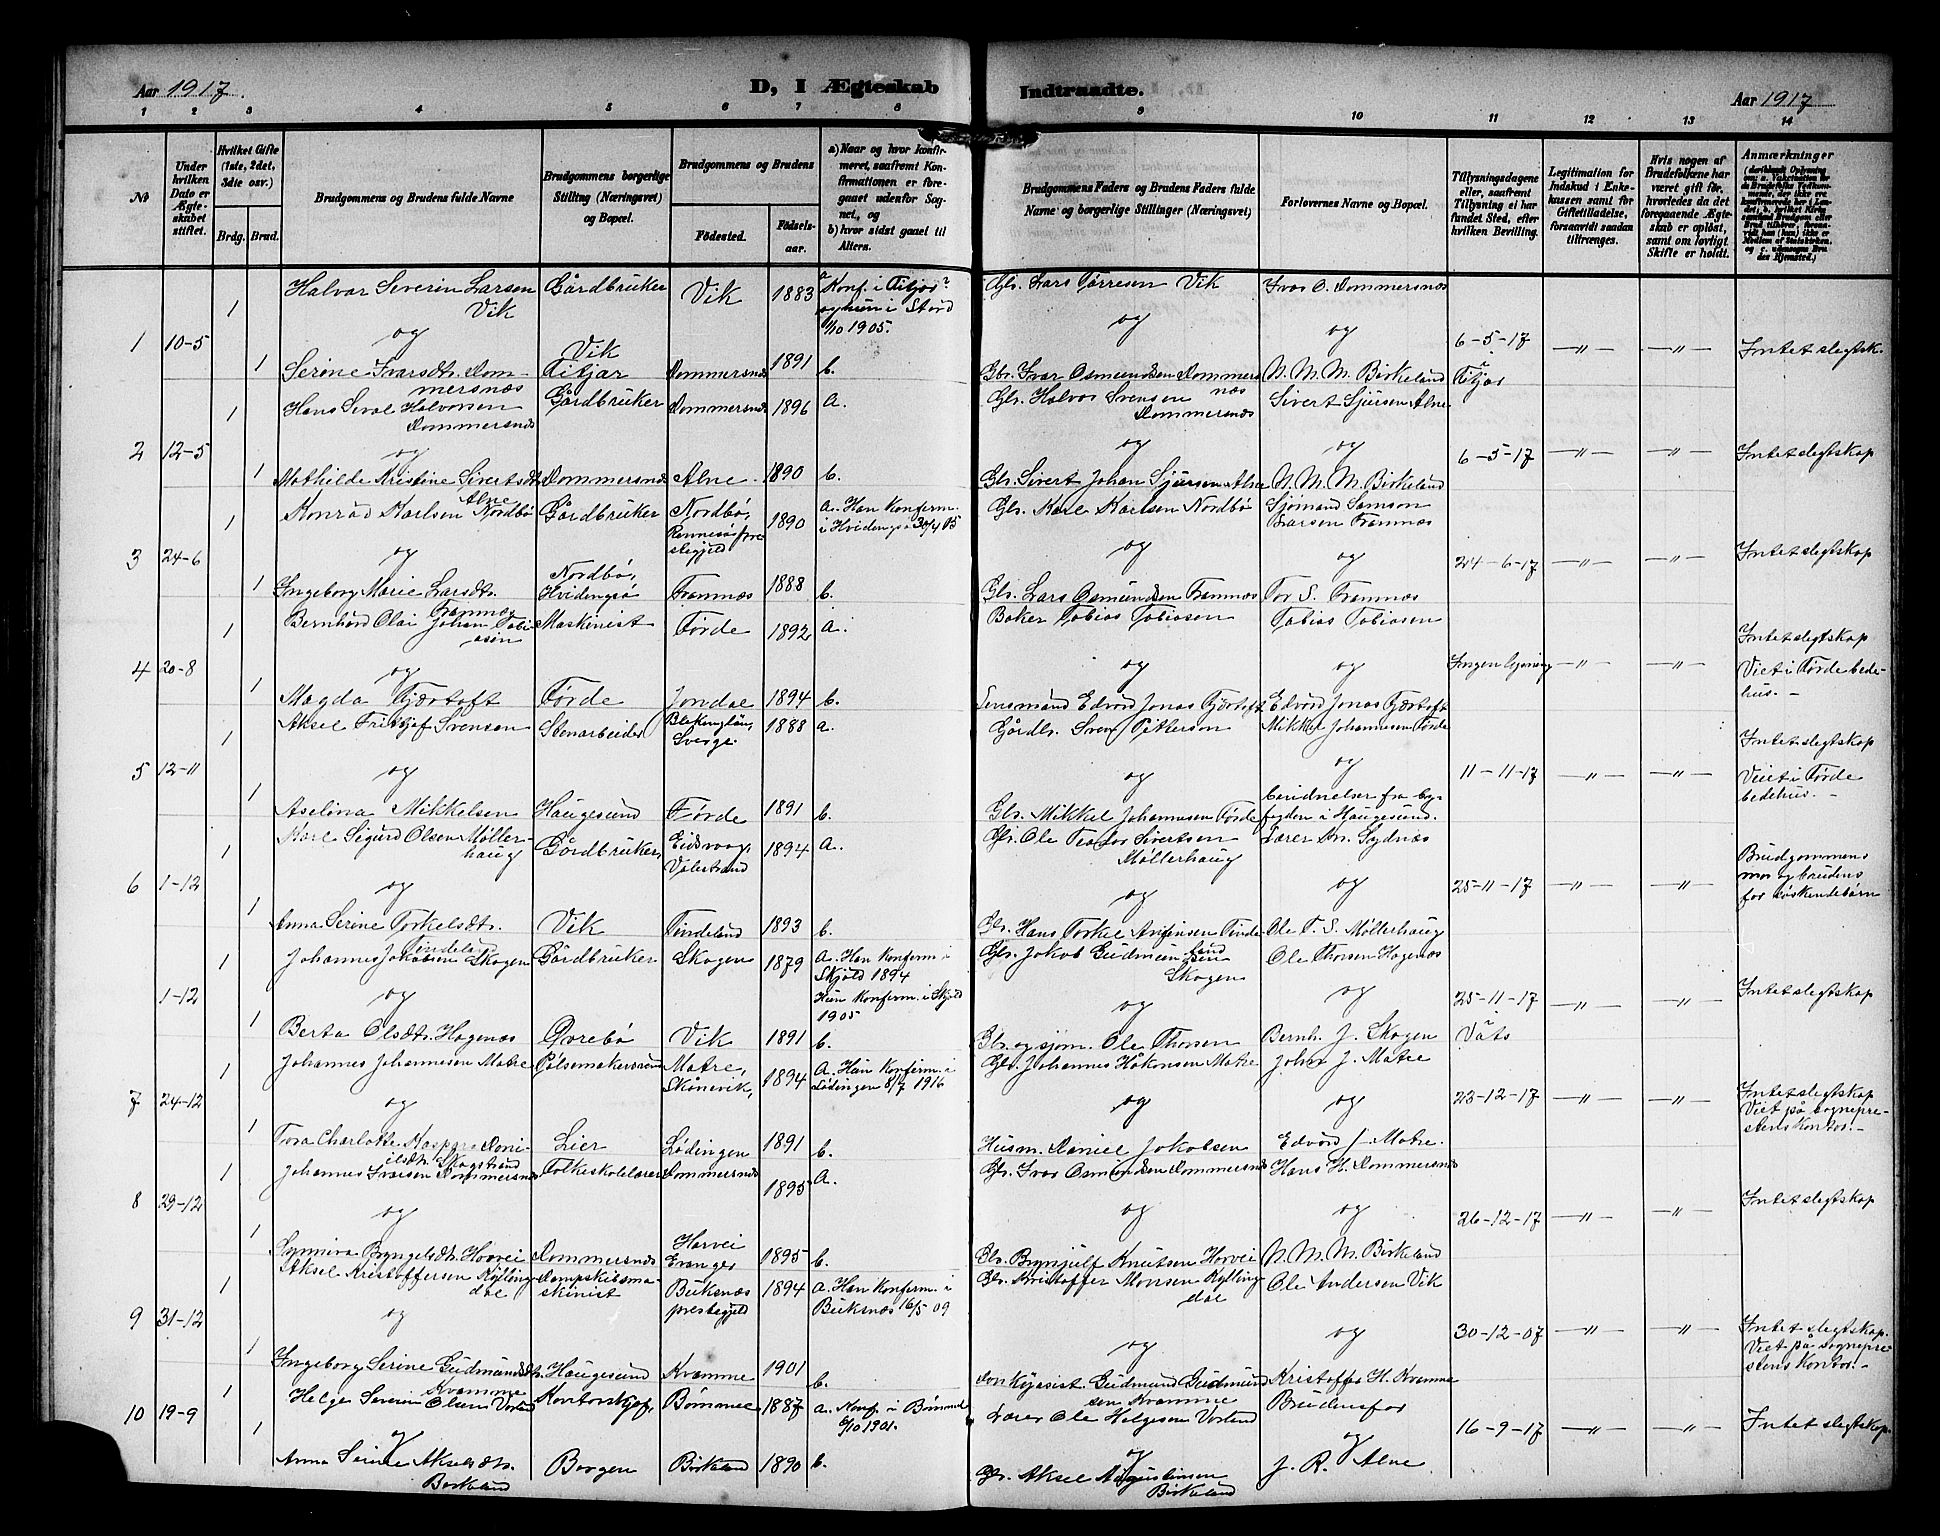 Aar 1917.
D, I Ægteskab Indtraadte.
Aar 1917
1 2 3 4 5 6 7 8 9 10 11 12 13 14
№
Under hvilken Dato er Ægteskabet stiftet.
Hvilket Gifte (1ste, 2det, 3die osv.)
Brdg. Brud.
Brudgommens og Brudens fulde Navne
Brudgommens borgerlige Stilling (Næringsvei) og Bopæl.
Brudgommens og Brudens
Fødested.
Fødselsaar.
a) Naar og hvor konfirmeret, saafremt Konfirmationen er foregaaet udenfor Sognet, og
b) hvor sidst gaaet til Alters.
Brudgommens Faders og Brudens Faders fulde Navne og borgerlige Stillinger (Næringsvei)
Forlovernes Navne og Bopæl.
Tillysningsdagene eller, saafremt Tillysning ei har fundet Sted, efter hvilken Bevilling.
Legitimation for Indskud i Enkekassen samt for Giftetilladelse, forsaavidt saadan tiltrænges.
Hvis nogen af Brudefolkene har været gift før, hvorledes da det foregaaende Ægteskab er opløst, samt om lovligt Skifte er holdt.
Anmærkninger
1 10-5 1 Halvar Severin Larsen Vik Gårdbruker Vik 1883 a Konf. i Fitjar og hun i Stord 1/10 1905. Gbr. Lars Tørresen Vik Ivar O. Dommersnes
og Vik og og 6-5-17 i Fitjar —〃— —〃— Intet slegtsk.
1 Serine Ivarsdtr. Dommersnæs Fitjar Dommersnes 1891 b. Gbr. Ivar Osmundsen Dommersnæs N. M. M. Birkeland
2 12-5 1 Hans Seval Halvorsen Dommersnes Gårdbruker Dommersnes 1896 a. Gbr. Halvor Svensen Dommersnes Sivert Sjursen Alne
og og og 6-5-17 —〃— —〃— Intet slegtskap
1 Mathilde Kristine Sivertsdtr. Alne Dommersnes Alne 1890 b. Gbr. Sivert Johan Sjursen Alne N. M. M. Birkeland
3 24-6 1 Konrad Karlsen Nordbø Gårdbruker Nordbø, Rennesø prestegjeld 1890 a. Han konferm. i Hvidingsø 30/4 05 Gbr. Karl Karlsen Nordbø Sjømand Samson Larsen Framnæs
og Nordbø, og og 24-6-17 —〃— —〃— Intet slegtskap
1 Ingeborg Marie Larsdtr. Framnæs Hvidingsø Framnæs 1888 b. Gbr. Lars Osmundsen Framnæs Tor S. Framnæs
4 20-8 1 Bernhard Olai Johan Tobiasen Maskinist Førde 1892 a. Baker Tobias Tobiasen Tobias Tobiasen
og og og Ingen lysning —〃— —〃— Intet slegtskap Viet i Førde bedehus.-
1 Magda Fjærtoft Førde Jondal 1894 b. Lensmand Edvard Jonas Fjærtoft Edvard Jonas Fjærtoft
5 12-11 1 Aksel Fritjof Svensen Stenarbeider Blekinglän, Sverge. 1888 a. Gårdbr. Sven Pettersen Mikkel Johannesen Førde
og og og 11-11-17 —〃— —〃— Intet slegtskap Viet i Førde bedehus.-
1 Aselina Mikkelsen Haugesund Førde 1891 b. Gbr. Mikkel Johannesen Førde
6 1-12 1 Karl Sigurd Olsen Møllerhaug Gårdbruker, Eidsvaag, Valestrand 1894 a. Gbr. Ole Teodor Sivertsen Møllerhaug Lærer Sydnes
og og og 25-11-17 —〃— —〃— Brudgommens mor og brudens far søskendebørn
1 Anna Serine Torkelsdtr. Tindeland Vik Tindeland 1893 b. Gbr. Hans Torkel Arnfinsen Tindeland Ole T. S. Møllerhaug
1-12 1 Johannes Jakobsen Skogen Gårdbruker Skogen 1879 a. Han konferm. i Skjold 1894 Hun konferm. i Skjold 1905 Gbr. Jakob Gudmundsen Skogen Ole Thorsen Hagenæs
og og og 25-11-17 i Vats —〃— —〃— Intet slegtskap
1 Berta Olsdtr. Hagenæs Øvrebø Vik 1891 b. Gbr. og sjøm. Ole Thorsen Bernh. J. Skogen
7 24-12 1 Johannes Johannesen Matre Pølsemakersvend Matre, Skånevik, 1894 a. Han konferm. i Lødingen 8/7 1916 Gbr. Johannes Håkonsen Matre Johan J. Matre
og og og 23-12-17 —〃— —〃— Intet slegtskap Viet på sogneprestens kontor.-
1 Tora Charlotte Kaspara Danielsdtr. Skogstrand Lier Lødingen 1891 b. Husm. Daniel Jakobsen Edvard J. Matre.
8 29-12 1 Johannes Ivarsen Dommersnes Folkeskolelærer Dommersnes 1895 a. Gbr. Ivar Osmundsen Dommersnes Hans H. Dommersnes
og og og 26-12-17 —〃— —〃— Intet slegtskap
1 Synniva Bryngelsdtr. Horvei Dommersnes Horvei Evanger 1895 b. Gbr. Brynjulf Knutsen Horvei N. M. M. Birkeland
9 31-12 1 Aksel Kristoffersen Kyllingdal Dampskibsmaskinist Buksnæs prestegjeld 1894 a. Han konferm. i Buksnæs 16/5 09 Gbr. Kristoffer Monsen Kyllingdal Ole Andersen Vik
og og og 30-12-07 —〃— —〃— Intet slegtskap. Viet på sogneprestens kontor.-
1 Ingeborg Serine Gudmundsdtr. Kvamme Haugesund Kvamme 1901 b. Gudmund Gudmundsen Kvamme Kristoffer H. Kvamme
10 19-9 1 Helge Severin Olsen Vorland Kontorsjef, Bømmel 1887 a. Konf. i Bømmel 6/10 1901. Lærer Ole Helgesen Vorland Brudens far
og og og 16-9-17 —〃— —〃— Intet slegtskap.
1 Anna Serine Akselsdtr. Birkeland Bergen Birkeland 1890 b. Gbr. Aksel Augustinsen Birkeland J. R. Alne